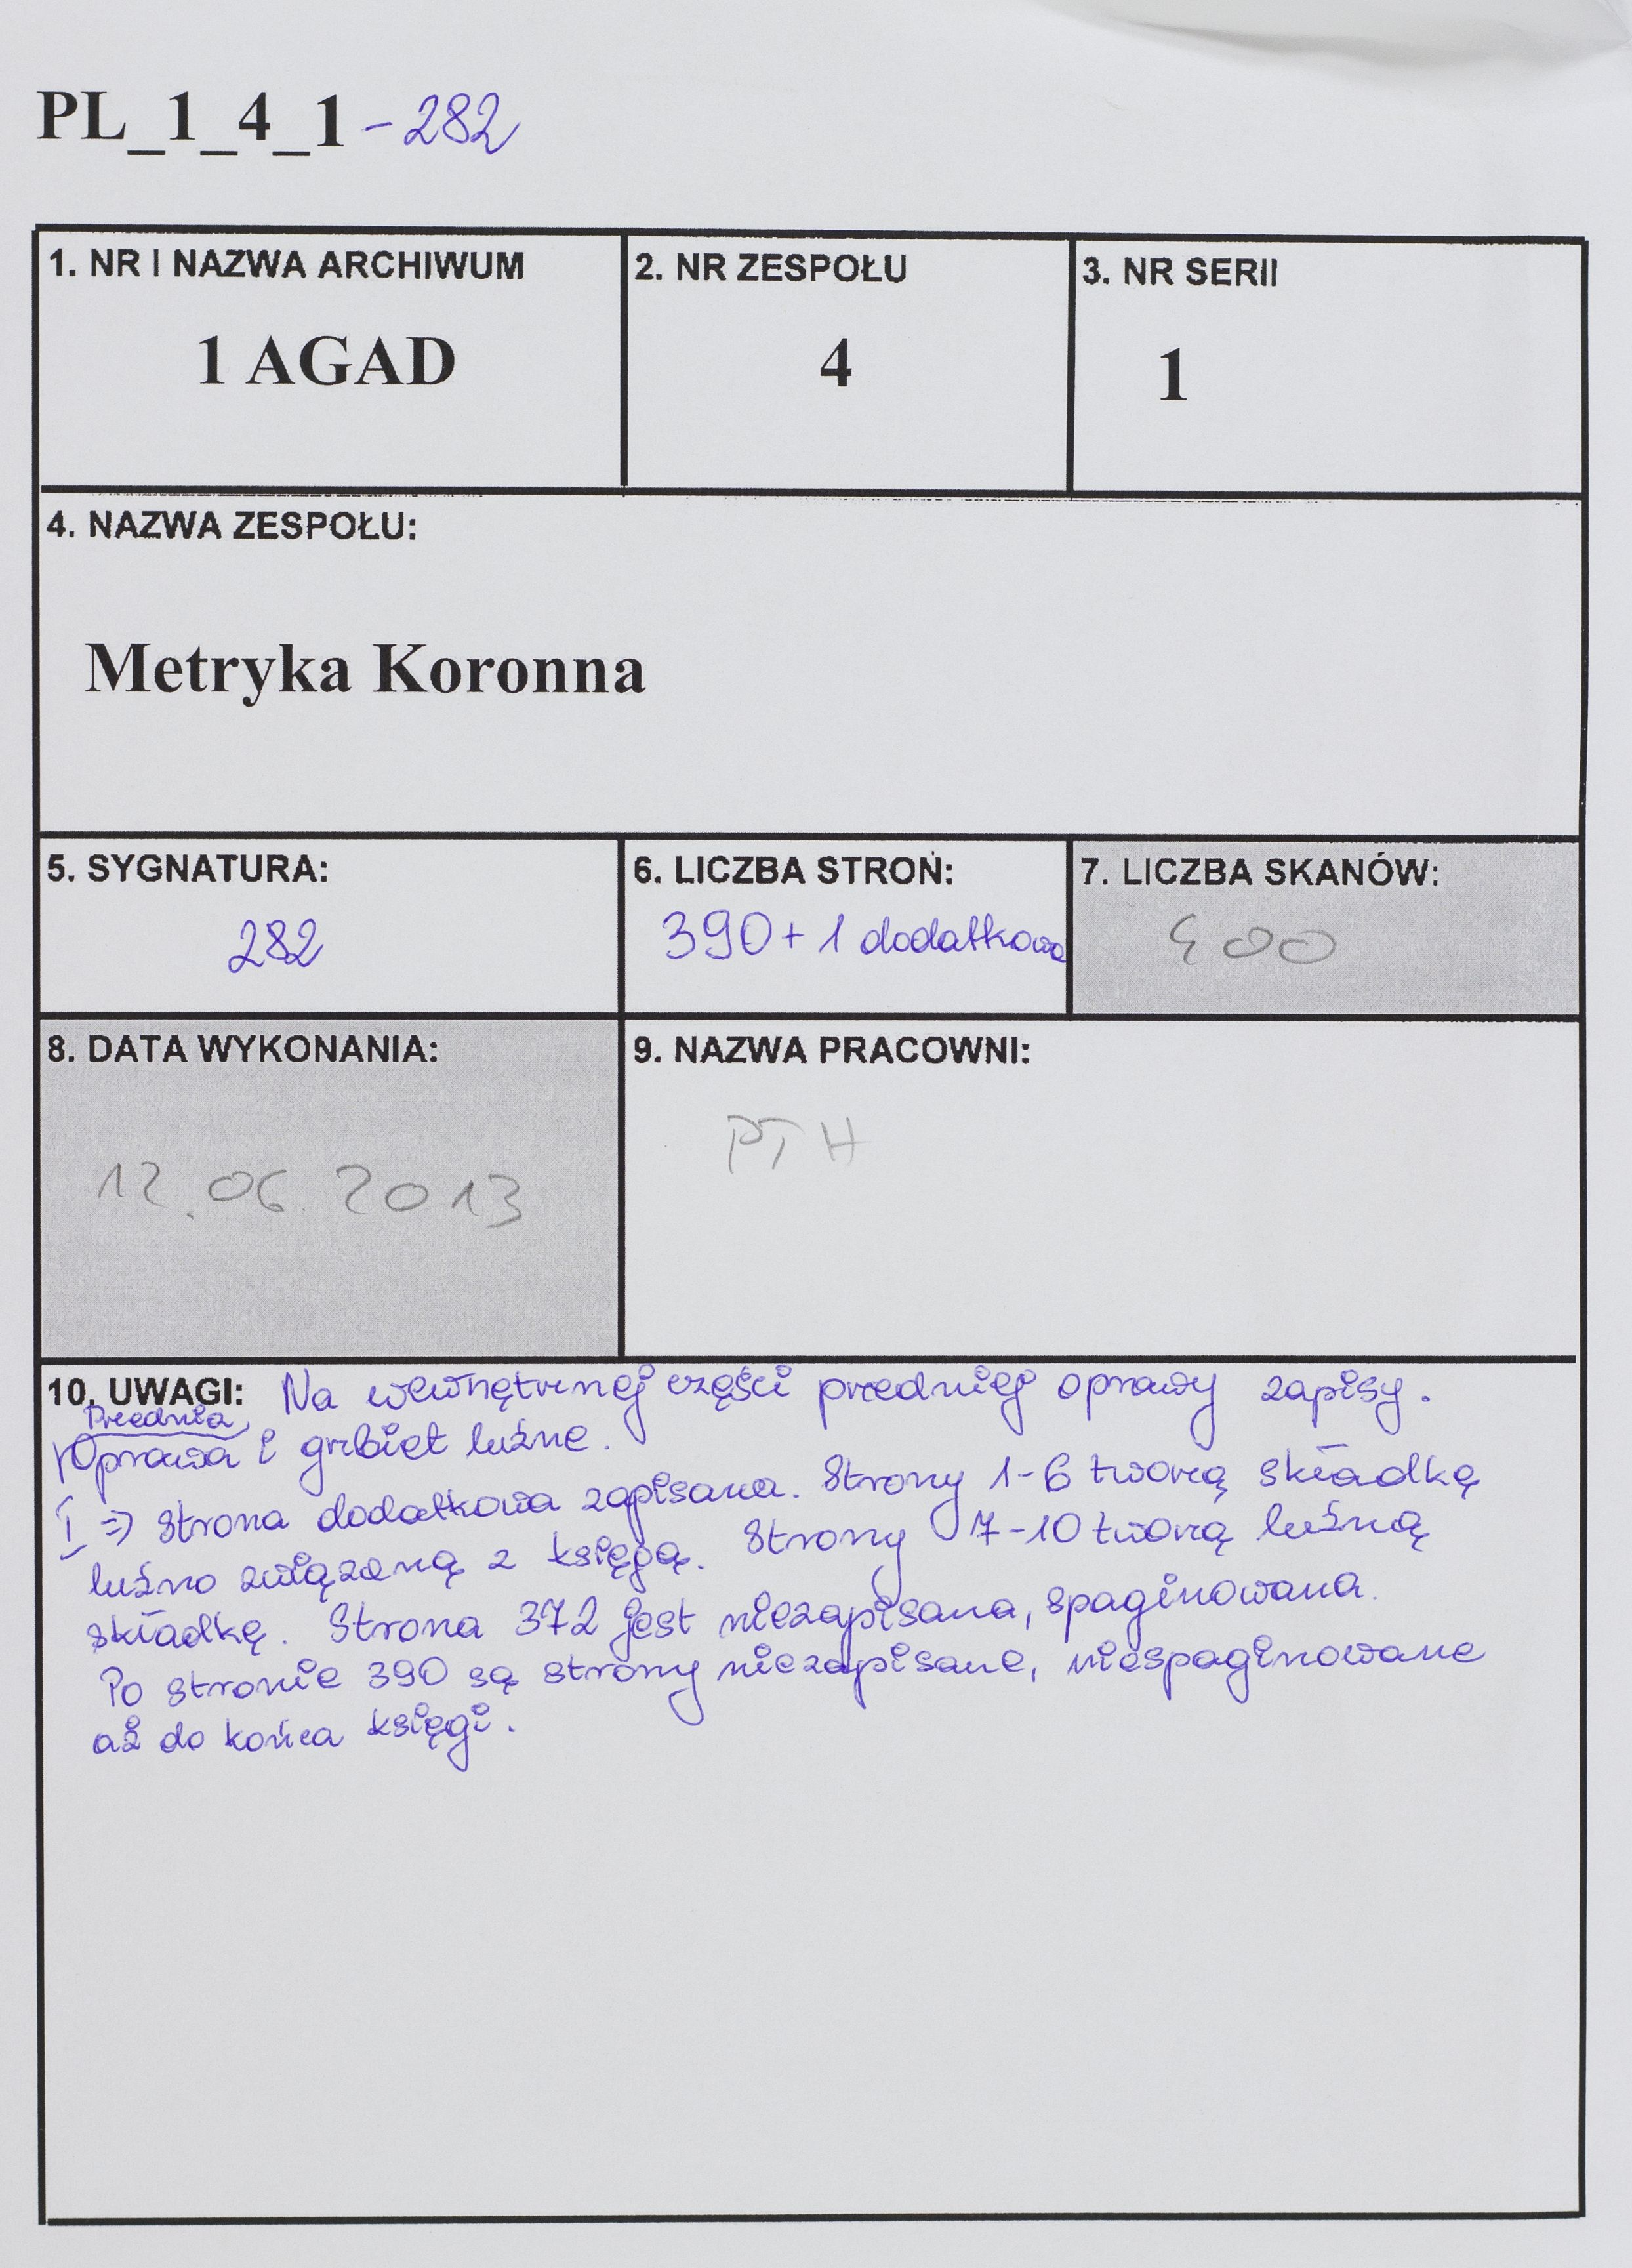 PL_1_4_1 - 282
1. NR I NAZWA ARCHIWUM
1 AGAD
2. NR ZESPOŁU
4
3. NR SERII
1
4. NAZWA ZESPOŁU:
Metryka Koronna
5. SYGNATURA:
282
6. LICZBA STRON:
390 + 1 dodatkowa
7. LICZBA SKANÓW:
400
8. DATA WYKONANIA:
12.06.2013
9. NAZWA PRACOWNI:
PTH
10. UWAGI: Na wewnętrznej części przedniej oprawy zapisy.
Przednia
Oprawa i grzbiet luźne.
I => strona dodatkowa zapisana. Strony 1-6 tworzą składkę
luźno związaną z księgą. Strony 7-10 tworzą luźną
składkę. Strona 372 jest niezapisana, spaginowana.
Po stronie 390 są strony niezapisane, niespaginowane
aż do końca księgi.